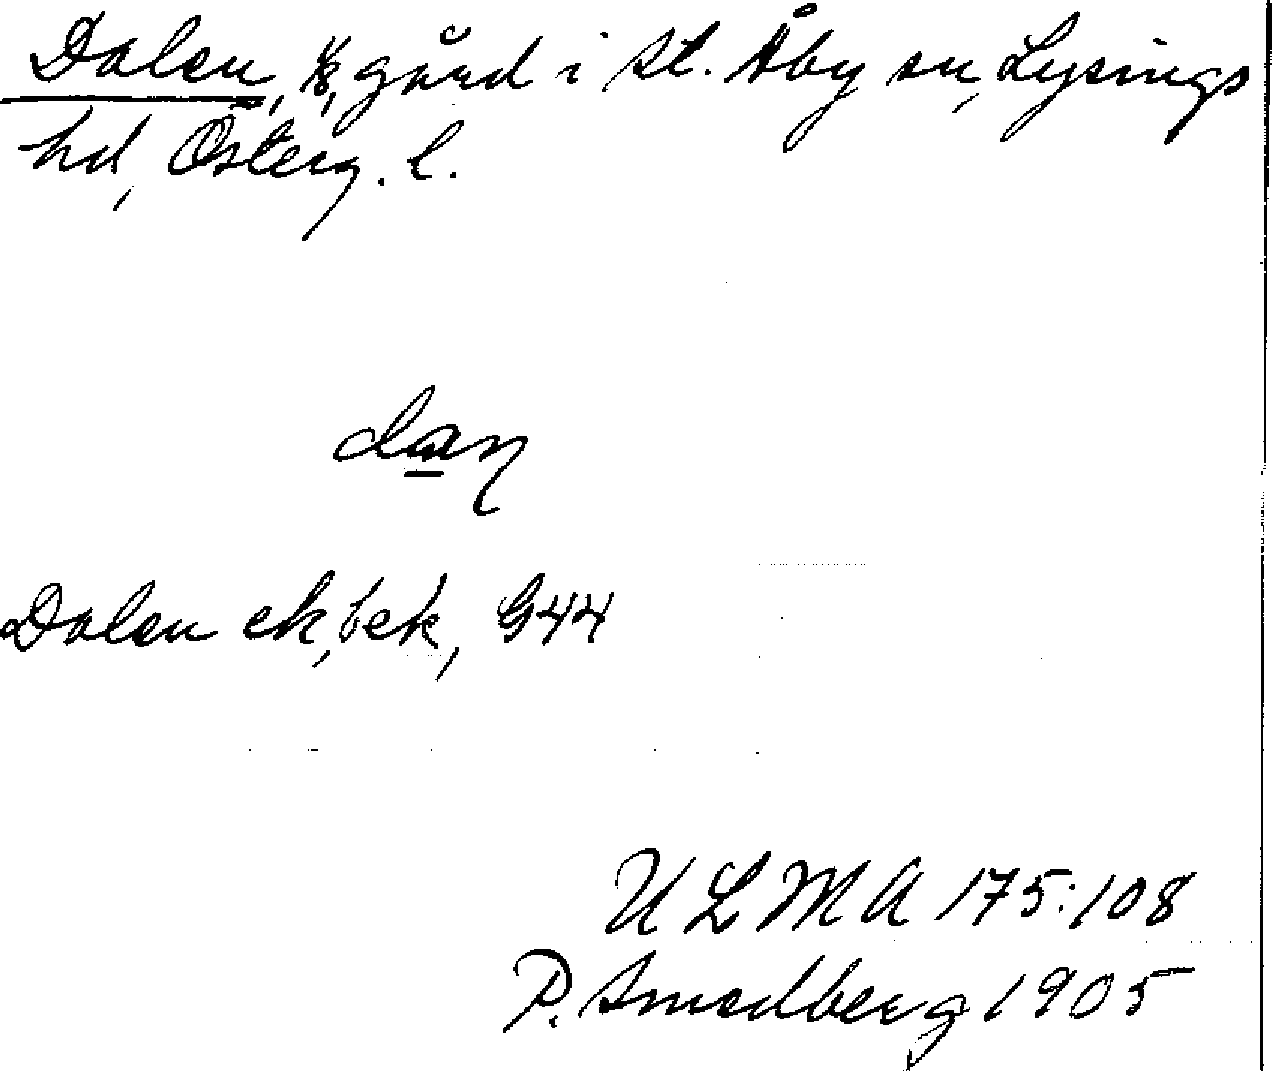 Dalen, ⅛, gård i St. Åby sn, Lysings
hd, Österg. l.
dan
Dalen ek, bek, G44
ULMA 175:108
P. Smedberg 1905